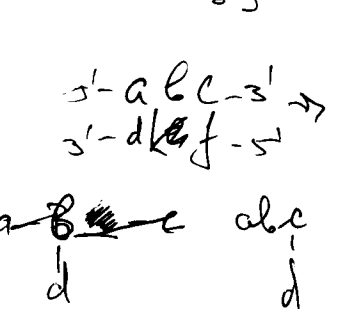 5'- a b c -3'
3'- d k f -5'
a b c abc
d d